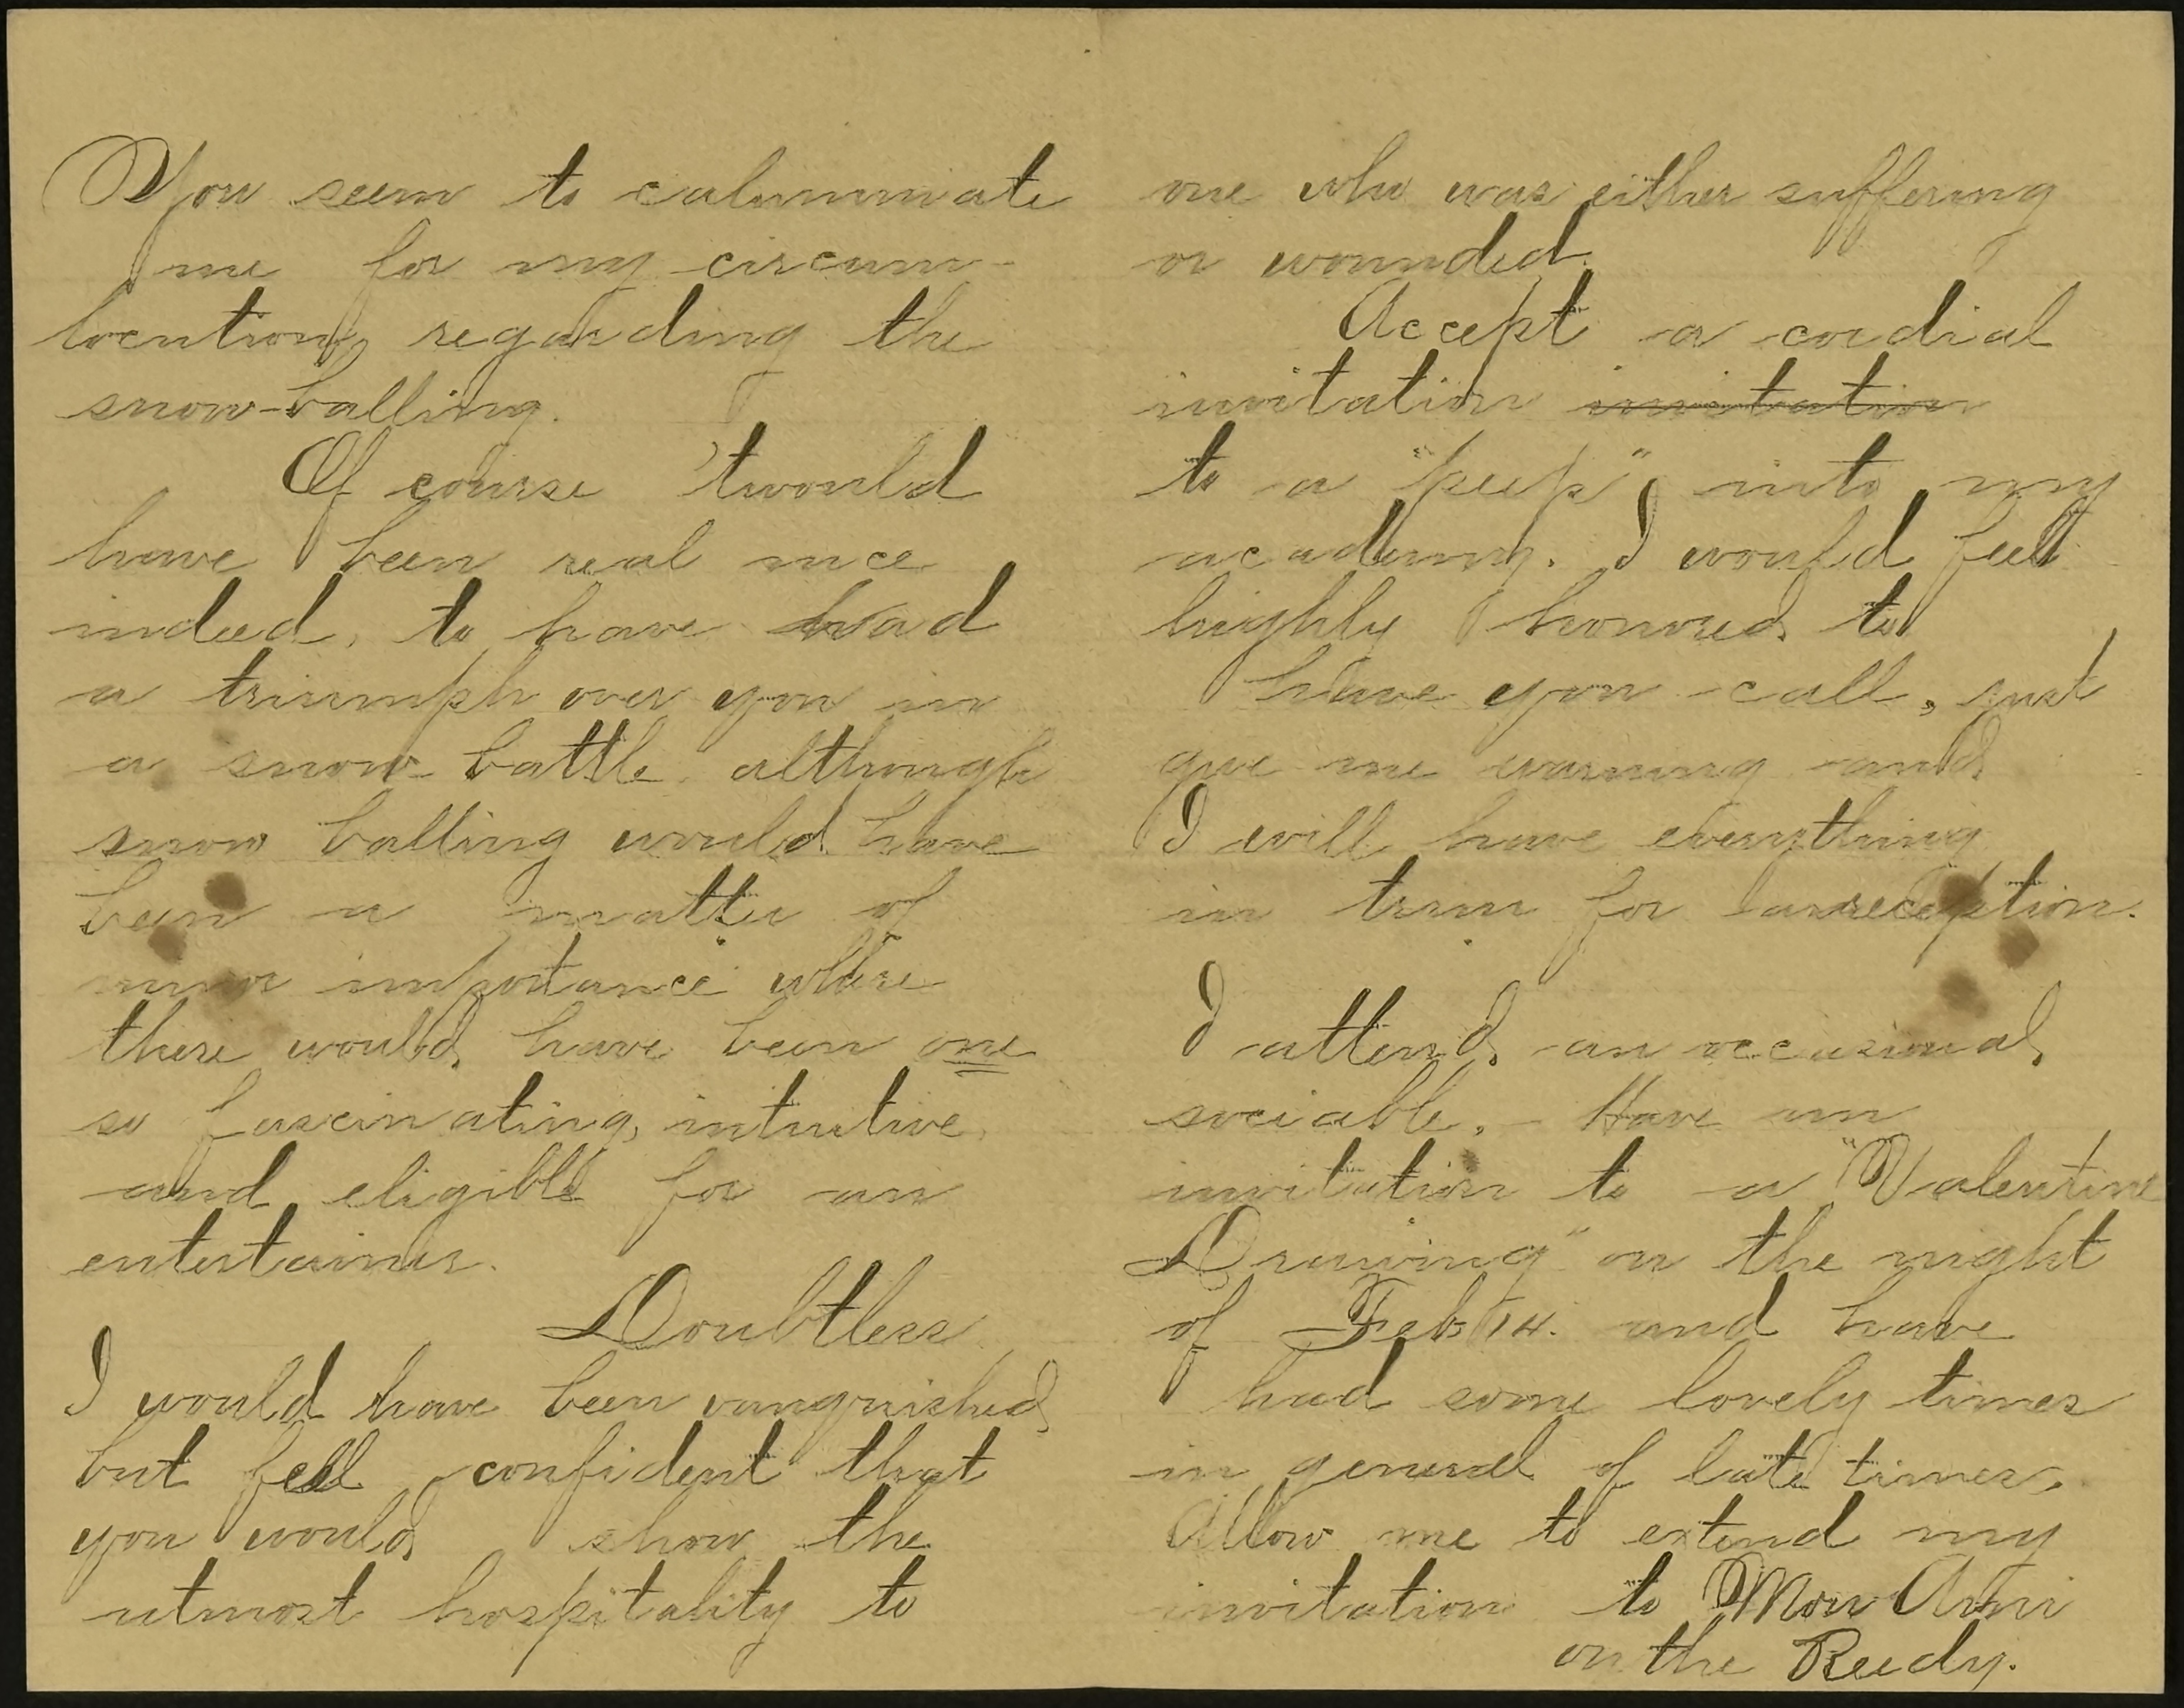 You seem to calumniate
me for my circum-
locution, regarding the
snow-balling.
Of course 'twould
have been real nice
indeed, to have had
a triumph over you in
a snow-battle, although
snow balling would have
been a matter of
minor importance where
there would have been one
so fascinating, intuitive,
and eligible for an
entertainer.
Doubtless
I would have been vanquished
but feel confident that
you would show the
utmost hospitality to
one who was either suffering
or wounded.
Accept a cordial
invitation invitation
to a "peep" into my
academy. I would feel
highly honored to
have you call, just
give me warning and
I will have everything
in trim for a reception.
I attend an occasional
sociable. - Have an
invitation to a "Valentine
Drawing" on the night
of Feb 14. and have
had some lovely times
in general of late times,
Allow me to extend my
invitation to Mon Ami
on the Reedy.